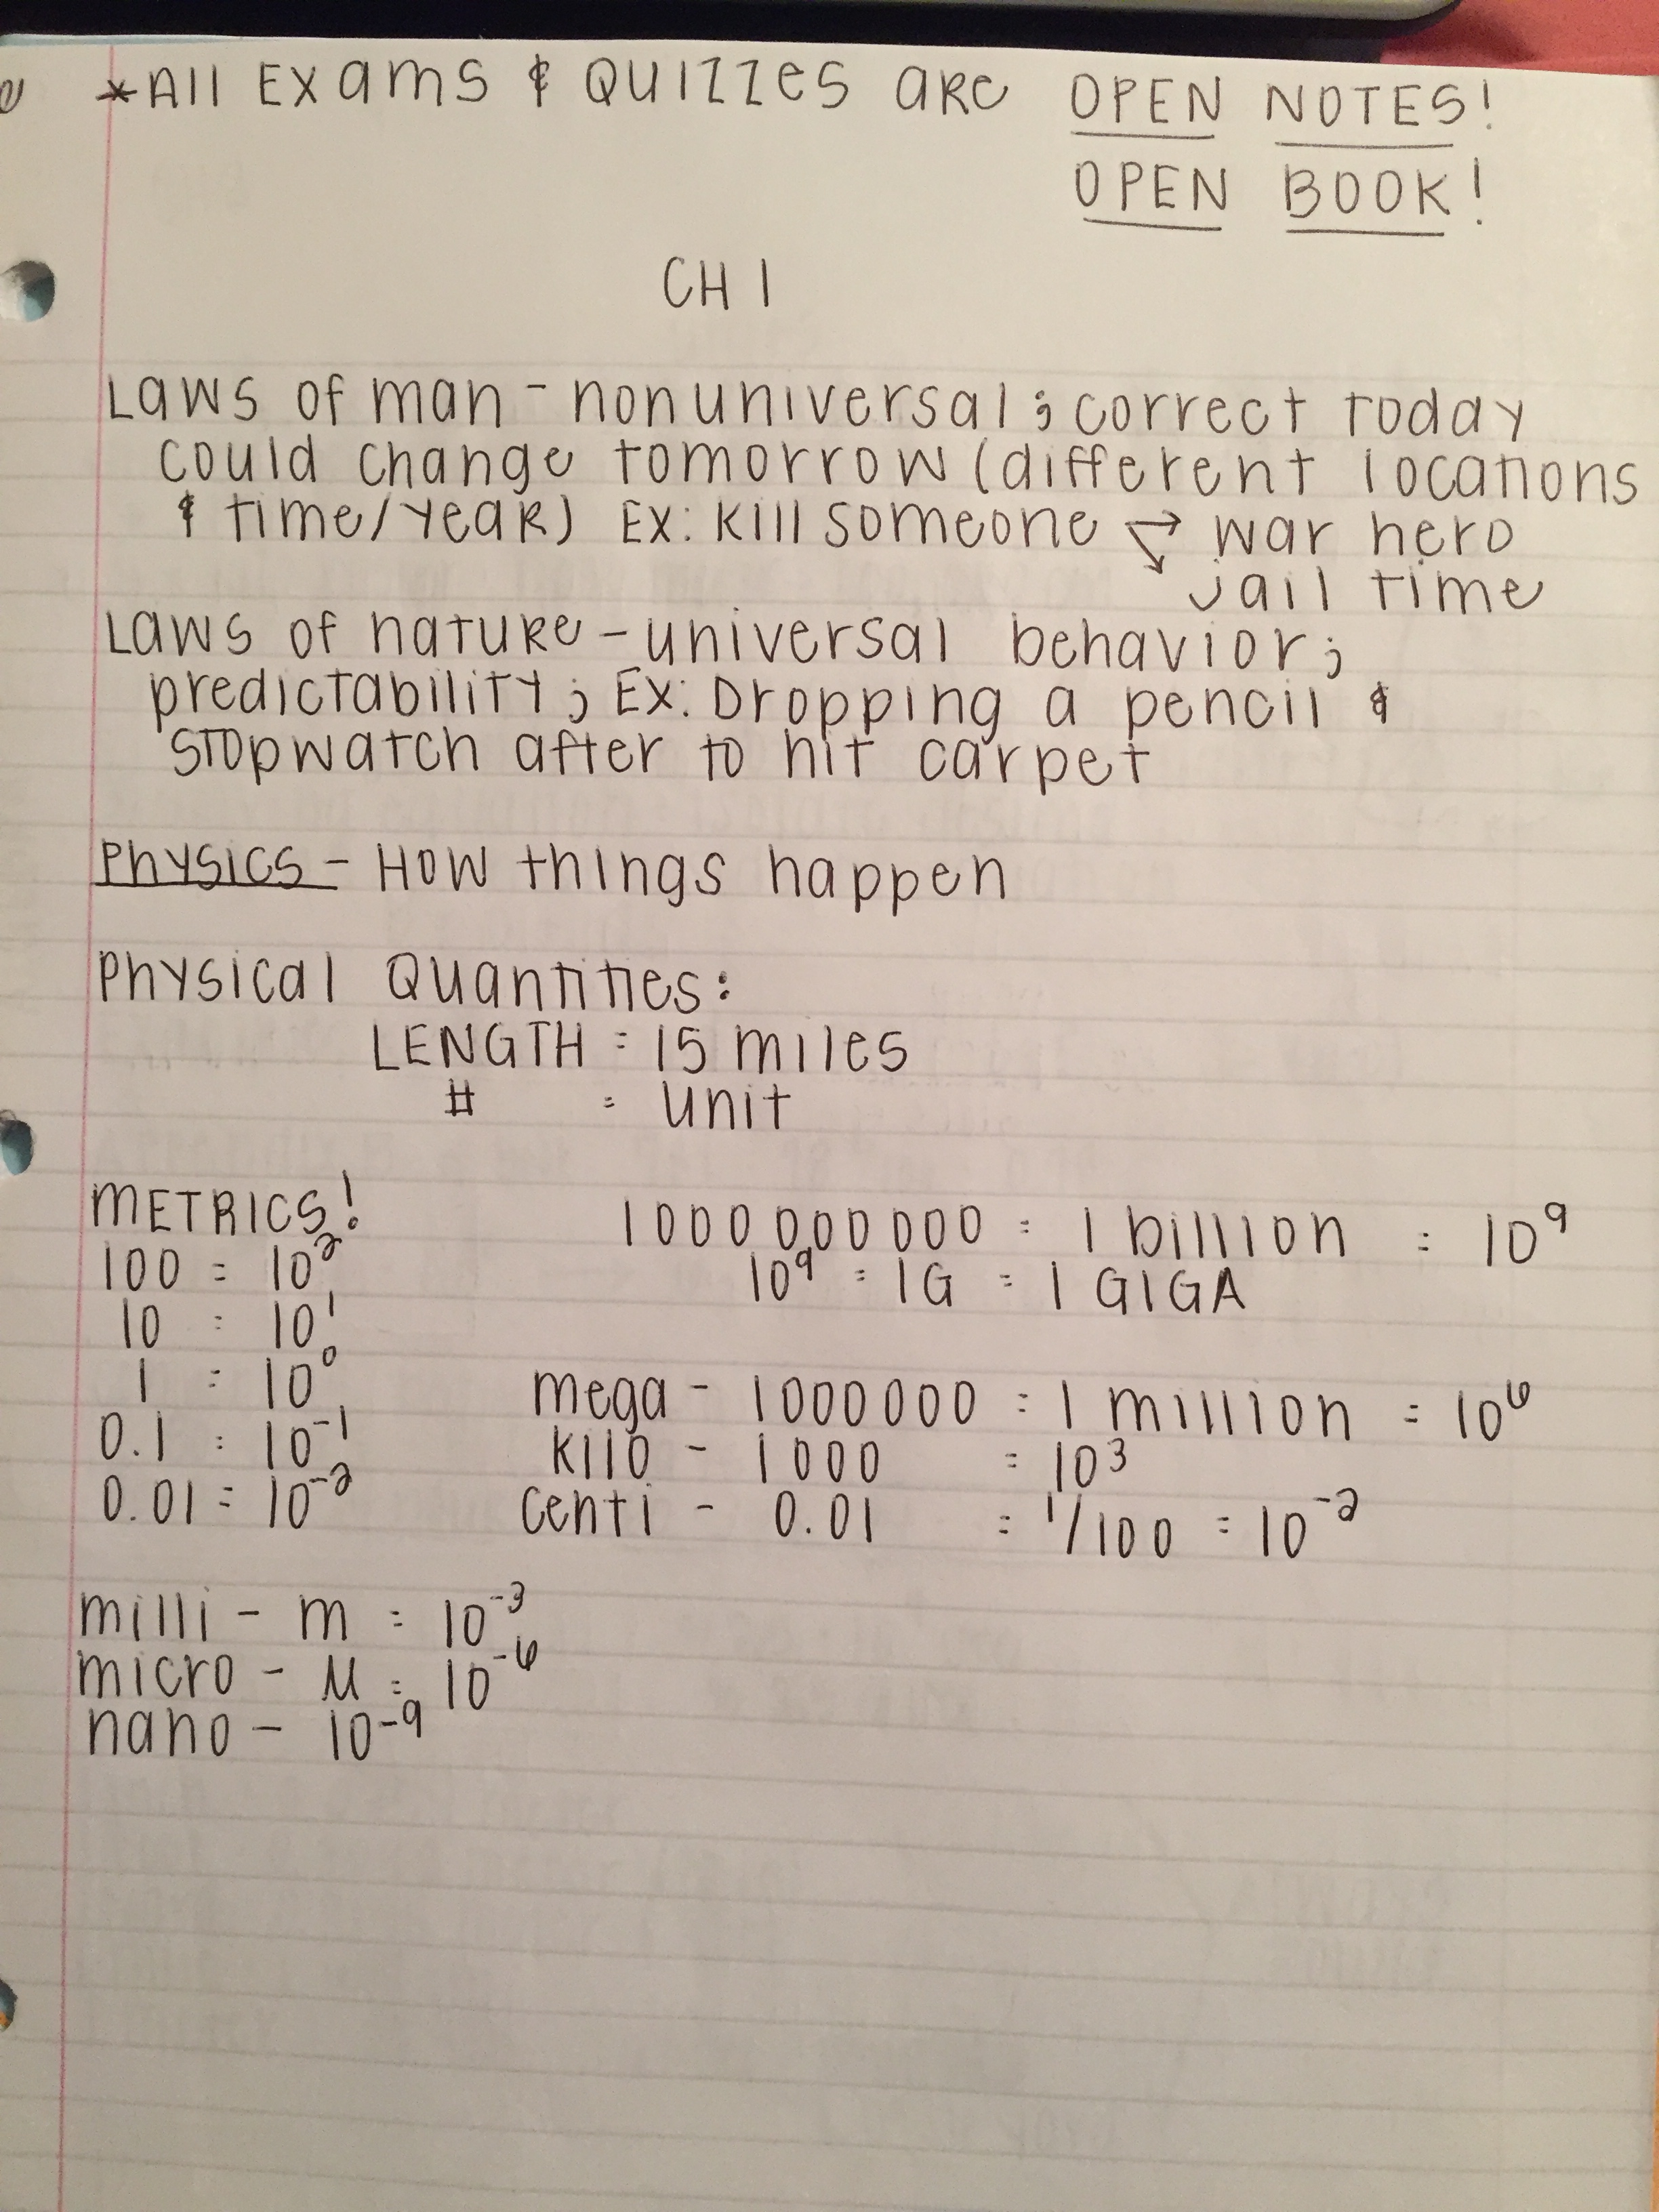 *All Exams & Quizzes are OPEN NOTES!
OPEN BOOK!
CH 1
Laws of man - nonuniversal; correct today
could change tomorrow (different locations
& time/year) Ex: Kill someone → war hero
→ jail time
Laws of nature - universal behavior;
predictability; Ex: Dropping a pencil &
stopwatch after to hit carpet
Physics - How things happen
Physical Quantities:
LENGTH = 15 miles
# = unit
METRICS!
100 = 10²
10 = 10¹
1 = 10⁰
0.1 = 10⁻¹
0.01 = 10⁻²
1000000000 = 1 billion = 10⁹
10⁹ = 1G = 1 GIGA
mega - 1000000 = 1 million = 10⁶
kilo - 1000 = 10³
centi - 0.01 = 1/100 = 10⁻²
milli - m = 10⁻³
micro - µ = 10⁻⁶
nano - 10⁻⁹